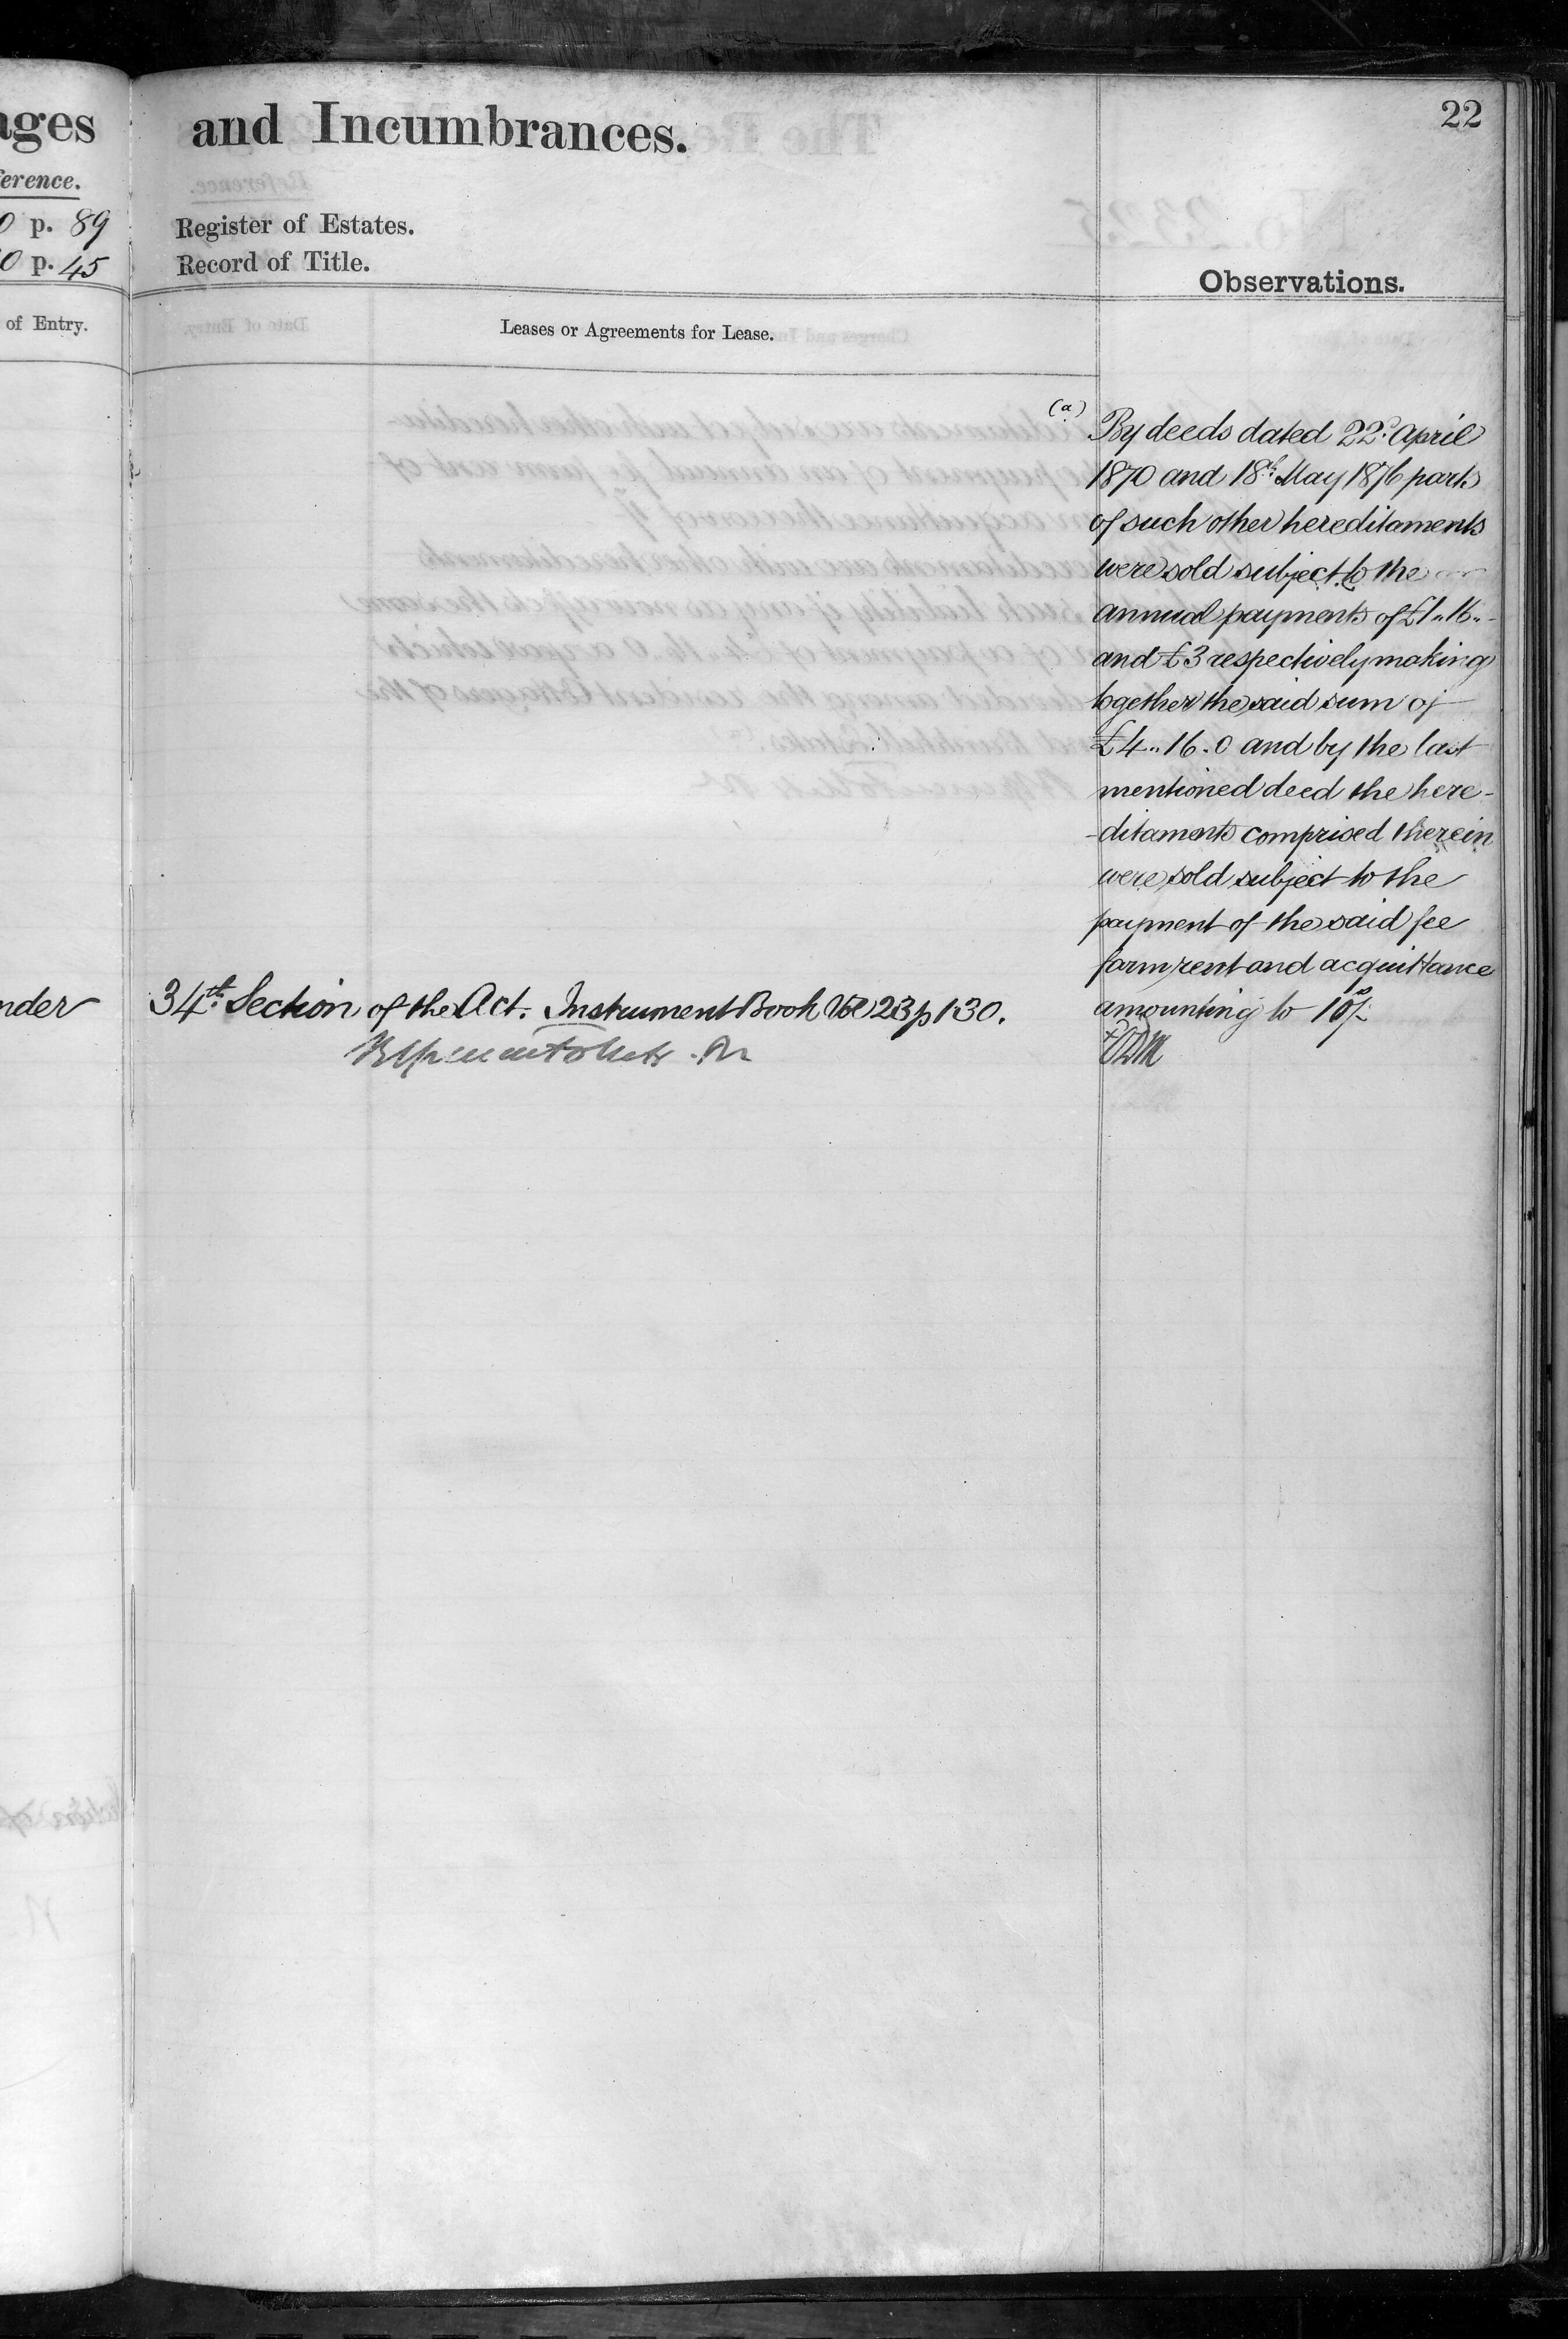 ages
and Incumbrances.
22
erence.
0 p. 89
Register of Estates.
0 p. 45
Record of Title.
Observations.
of Entry.
Leases or Agreements for Lease.
(a)
By deeds dated 22d. April
1870 and 18th. May 1876 parts
of such other hereditaments
were sold subject to the
annual payments of £1 " 16 " -
and £3 respectively making
together the said sum of
£4 " 16 . 0 and by the last
mentioned deed the here-
-ditaments comprised therein
were sold subject to the
payment of the said fee
farm rent and acquittance
amounting to
nder
34th. Section of the Act. Instrument Book Vol 23 p 130.